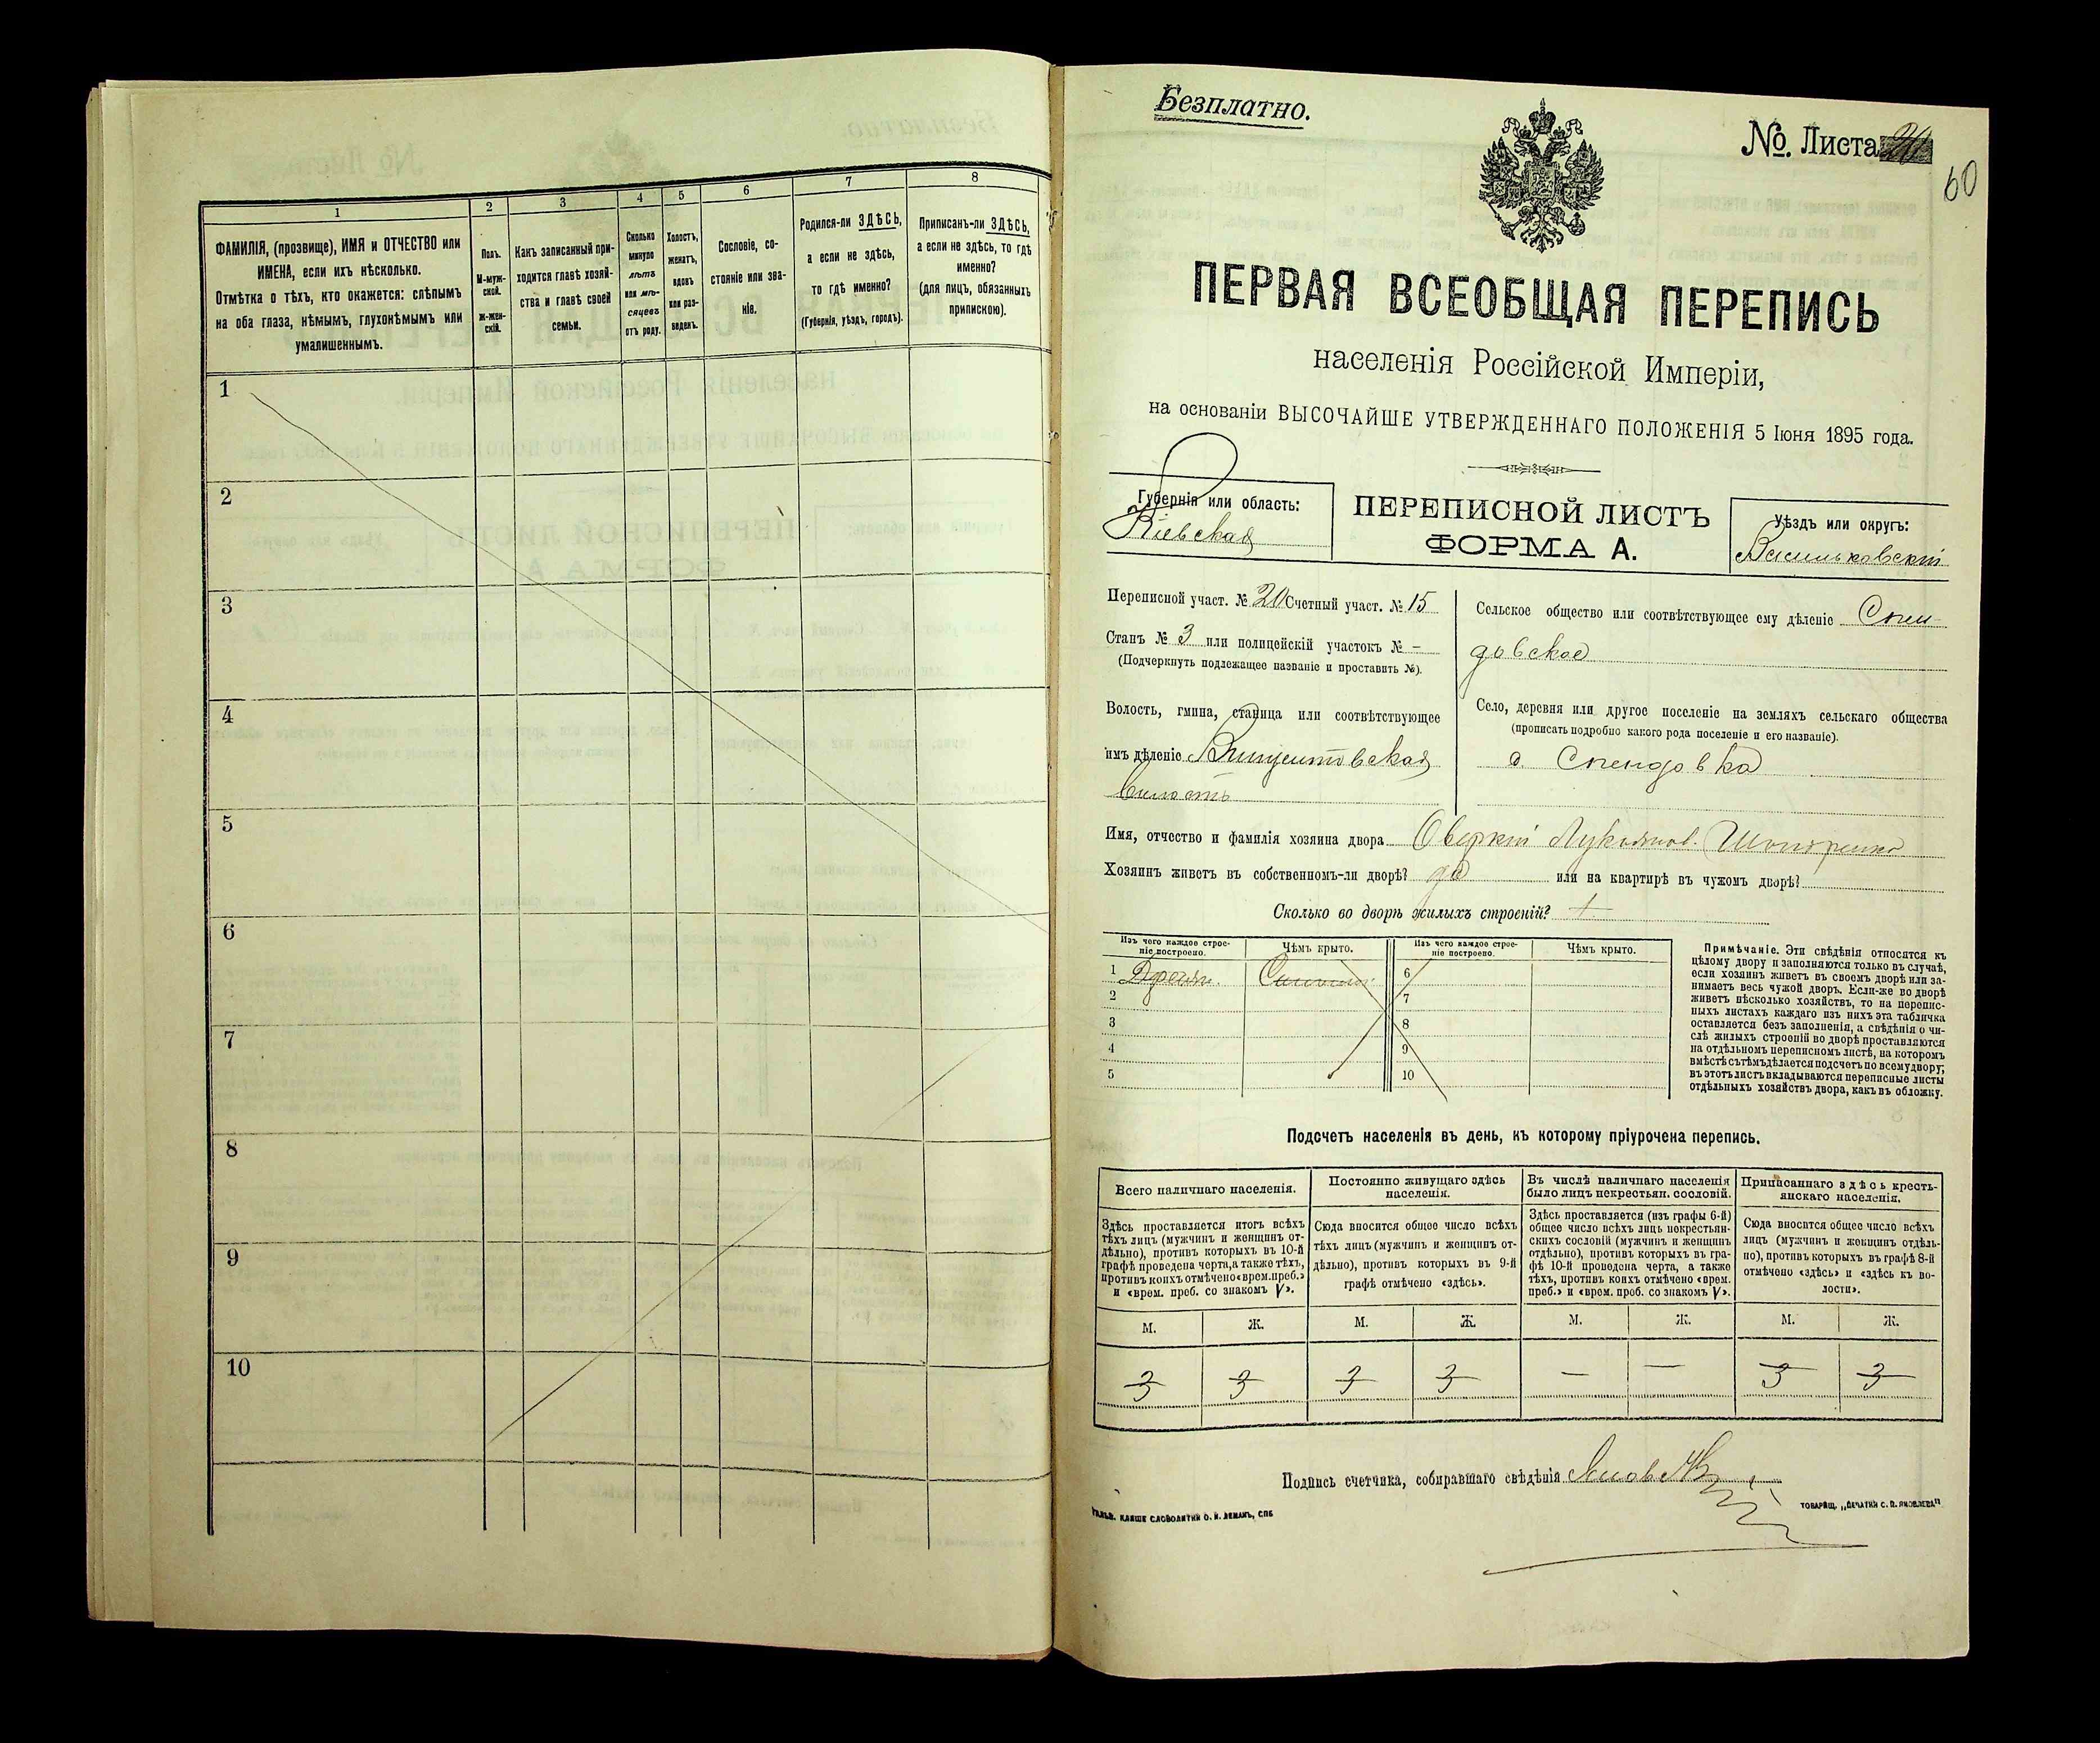 1
2
3
4
5
6
7
8
ФАМИЛІЯ, (прозвище), ИМЯ и ОТЧЕСТВО или
ИМЕНА, если ихъ нѣсколько.
Отмѣтка о тѣхъ, кто окажется: слѣпымъ
на оба глаза, нѣмымъ, глухонѣмымъ или
умалишеннымъ.
Полъ.
М-муж-
ской.
Ж-жен-
скій.
Какъ записанный при-
ходится главѣ хозяй-
ства и главѣ своей
семьи.
Сколько
минуло
лѣтъ
или мѣ-
сяцевъ
отъ роду.
Холостъ,
женатъ,
вдовъ
или раз-
веденъ.
Сословіе, со-
стояніе или зва-
ніе.
Родился-ли ЗДѢСЬ,
а если не здѣсь,
то гдѣ именно?
(Губернія, уѣздъ, городъ).
Приписанъ-ли ЗДѢСЬ,
а если не здѣсь, то гдѣ
именно?
(для лицъ, обязанныхъ
припискою).
1
2
3
4
5
6
7
8
9
10
Безплатно.
№. Листа 20
60
ПЕРВАЯ ВСЕОБЩАЯ ПЕРЕПИСЬ
населенія Россійской Имперіи,
на основаніи ВЫСОЧАЙШЕ УТВЕРЖДЕННАГО ПОЛОЖЕНІЯ 5 Іюня 1895 года.
Губернія или область:
Кіевская
ПЕРЕПИСНОЙ ЛИСТЪ
ФОРМА А.
Уѣздъ или округъ:
Васильковскій
Переписной участ. № 20 Счетный участ. № 15
Станъ № 3 или полицейскій участокъ № –
(Подчеркнуть подлежащее названіе и проставить №).
Волость, гмина, станица или соотвѣтствующее
имъ дѣленіе Винцентовская
волость
Сельское общество или соотвѣтствующее ему дѣленіе Спен-
довское
Село, деревня или другое поселеніе на земляхъ сельскаго общества
(прописать подробно какого рода поселеніе и его названіе).
с. Спендовка
Имя, отчество и фамилія хозяина двора Оверкій Лукьянов.
Хозяинъ живетъ въ собственномъ-ли дворѣ? да или на квартирѣ въ чужомъ дворѣ?
Сколько во дворѣ жилыхъ строеній?
Изъ чего каждое строе-
ніе построено.
Чѣмъ крыто.
Изъ чего каждое строе-
ніе построено.
Чѣмъ крыто.
1 Деревян. Соломой
2
3
4
5
6
7
8
9
10
Примѣчаніе. Эти свѣдѣнія относятся къ
цѣлому двору и заполняются только въ случаѣ,
если хозяинъ живетъ въ своемъ дворѣ или за-
нимаетъ весь чужой дворъ. Если-же во дворѣ
живетъ нѣсколько хозяйствъ, то на перепис-
ныхъ листахъ каждаго изъ нихъ эта табличка
оставляется безъ заполненія, а свѣдѣнія о чи-
слѣ жилыхъ строеній во дворѣ проставляются
на отдѣльномъ переписномъ листѣ, на которомъ
вмѣстѣ съ тѣмъ дѣлается подсчетъ по всему двору;
въ этотъ листъ вкладываются переписные листы
отдѣльныхъ хозяйствъ двора, какъ въ обложку.
Подсчетъ населенія въ день, къ которому пріурочена перепись.
Всего наличнаго населенія.
Постоянно живущаго здѣсь
населенія.
Въ числѣ наличнаго населенія
было лицъ некрестьян. сословій.
Приписаннаго здѣсь кресть-
янскаго населенія.
Здѣсь проставляется итогъ всѣхъ
тѣхъ лицъ (мужчинъ и женщинъ от-
дѣльно), противъ которыхъ въ 10-й
графѣ проведена черта, а также тѣхъ,
противъ коихъ отмѣчено «врем. преб.»
и «врем. преб. со знакомъ V».
Сюда вносится общее число всѣхъ
тѣхъ лицъ (мужчинъ и женщинъ от-
дѣльно), противъ которыхъ въ 9-й
графѣ отмѣчено «здѣсь».
Здѣсь проставляется (изъ графы 6-й)
общее число всѣхъ лицъ некрестьян-
скихъ сословій (мужчинъ и женщинъ
отдѣльно), противъ которыхъ въ гра-
фѣ 10-й проведена черта, а также
тѣхъ, противъ коихъ отмѣчено «врем.
преб.» и «врем. преб. со знакомъ V».
Сюда вносится общее число всѣхъ
лицъ (мужчинъ и женщинъ отдѣль-
но), противъ которыхъ въ графѣ 8-й
отмѣчено «здѣсь» и «здѣсь къ во-
лости».
М. Ж. М. Ж. М. Ж. М. Ж.
3 3 3 3 — — 3 3
Подпись счетчика, собиравшаго свѣдѣнія
КЛИШЕ СЛОВОЛИТНИ О. И. ЛЕМАНЪ, СПБ
ТОВАРИЩ. „ПЕЧАТНИ С. П. ЯКОВЛЕВА"